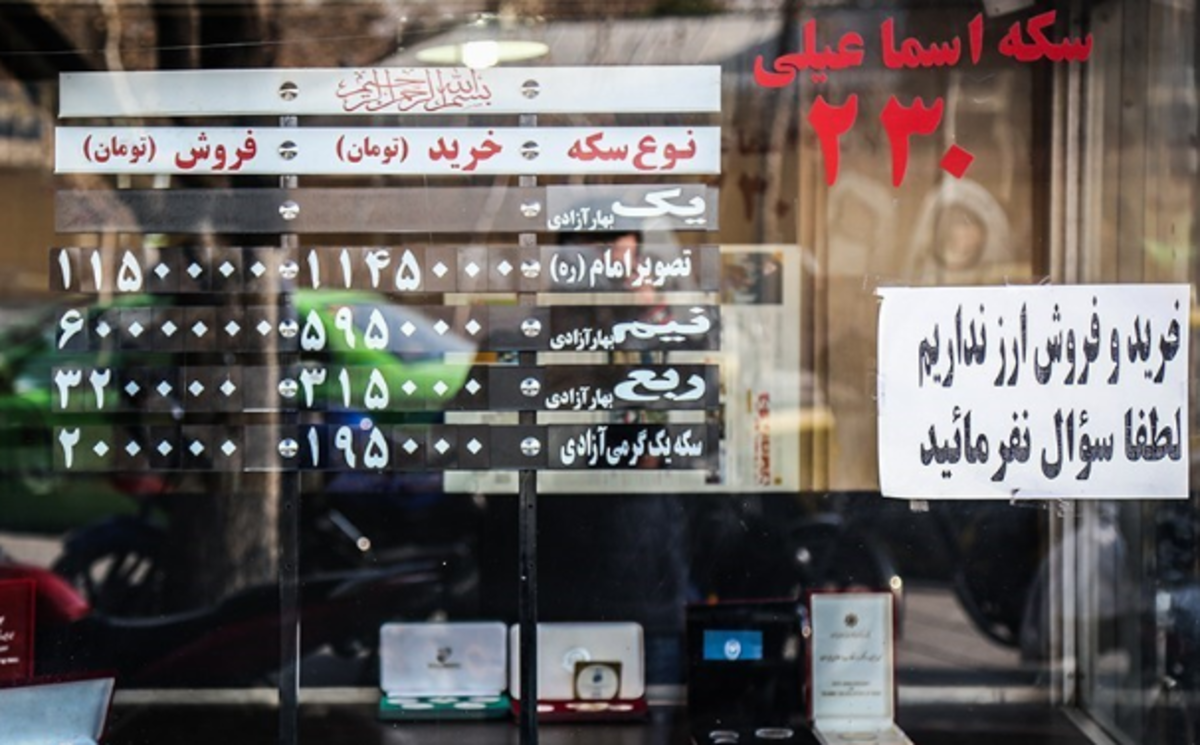 سکه اسماعیلی
۲۳۰
بسم الله الرحمن الرحیم
نوع سکه خرید (تومان) فروش (تومان)
یک بهار آزادی
تصویر امام (ره) ۱۱۴۵۰۰۰ ۱۱۵۰۰۰۰
نیم بهار آزادی ۵۹۵۰۰۰ ۶۰۰۰۰۰۰
ربع بهار آزادی ۳۱۵۰۰۰ ۳۲۰۰۰۰
سکه یک گرمی آزادی ۱۹۵۰۰۰ ۲۰۰۰۰۰
خرید و فروش ارز نداریم
لطفا سؤال نفرمائید